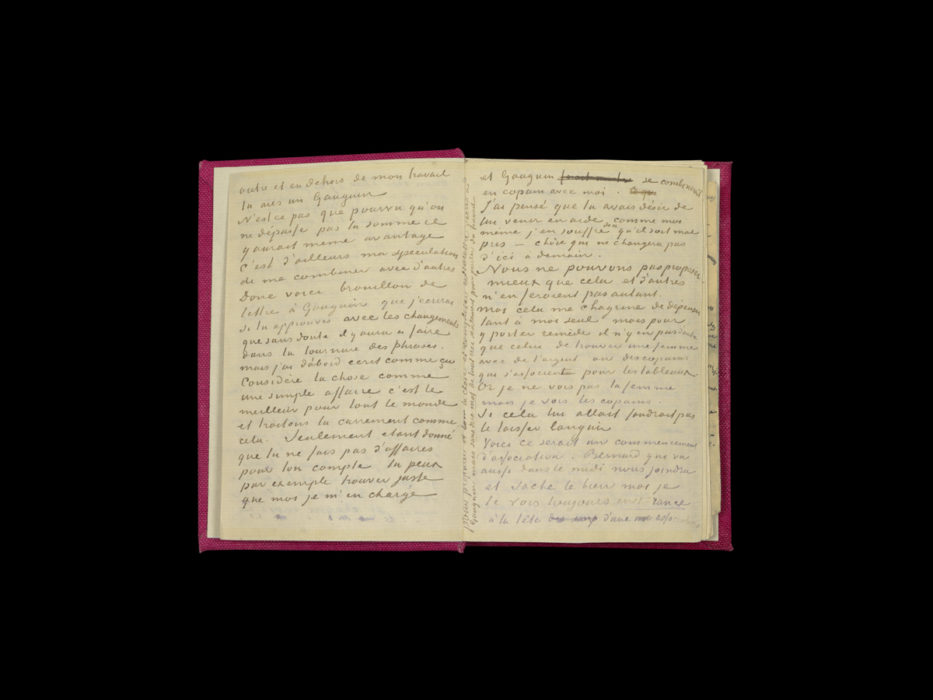 outre et en dehors de mon travail
tu aies un Gauguin
N'est ce pas que pourvu qu'on
ne dépasse pas la somme ce
y aurait même avantage
C'est d'ailleurs ma spéculation
de me combiner avec d'autres
Donc voici brouillon de
lettre à Gauguin que j'écrirai
si tu approuves avec les changements
que sans doute il y aura à faire
dans la tournure des phrases.
mais j'ai d'abord écrit comme ça
Considère la chose comme
une simple affaire c'est le
meilleur pour tout le monde
et traitons la carrement comme
cela. Seulement étant donné
que tu ne fais pas d'affaires
pour ton compte tu peux
par exemple trouver juste
que moi je m'en charge
et Gauguin se combinerait
en copain avec moi.
J'ai pensé que tu avais désir de
lui venir en aide comme moi
même j'en souffre qu'il soit mal
pris – chose qui ne changera pas
d'ici à demain.
Nous ne pouvons pas proposer
mieux que cela et d'autres
n'en feroient pas autant.
moi cela me chagrine de dépenser
tant à moi seul mais pour
y porter remède il n'y en pas d'autre
que celui de trouver une femme
avec de l'argent ou des copains
qui s'associent pour les tableaux.
Or je ne vois pas la femme
mais je vois les copains.
Si cela lui allait faudrait pas
le laisser languir
Voici ce serait un commencement
d'association. Bernard qui va
aussi dans le midi nous joindra
et sache le bien moi je
te vois toujours en France
à la tête d'une